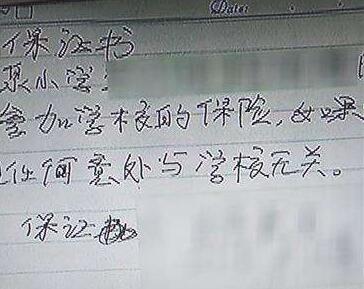 Date:
保证书
某小学:
参加学校的保险,如果
任何意外与学校无关。
保证